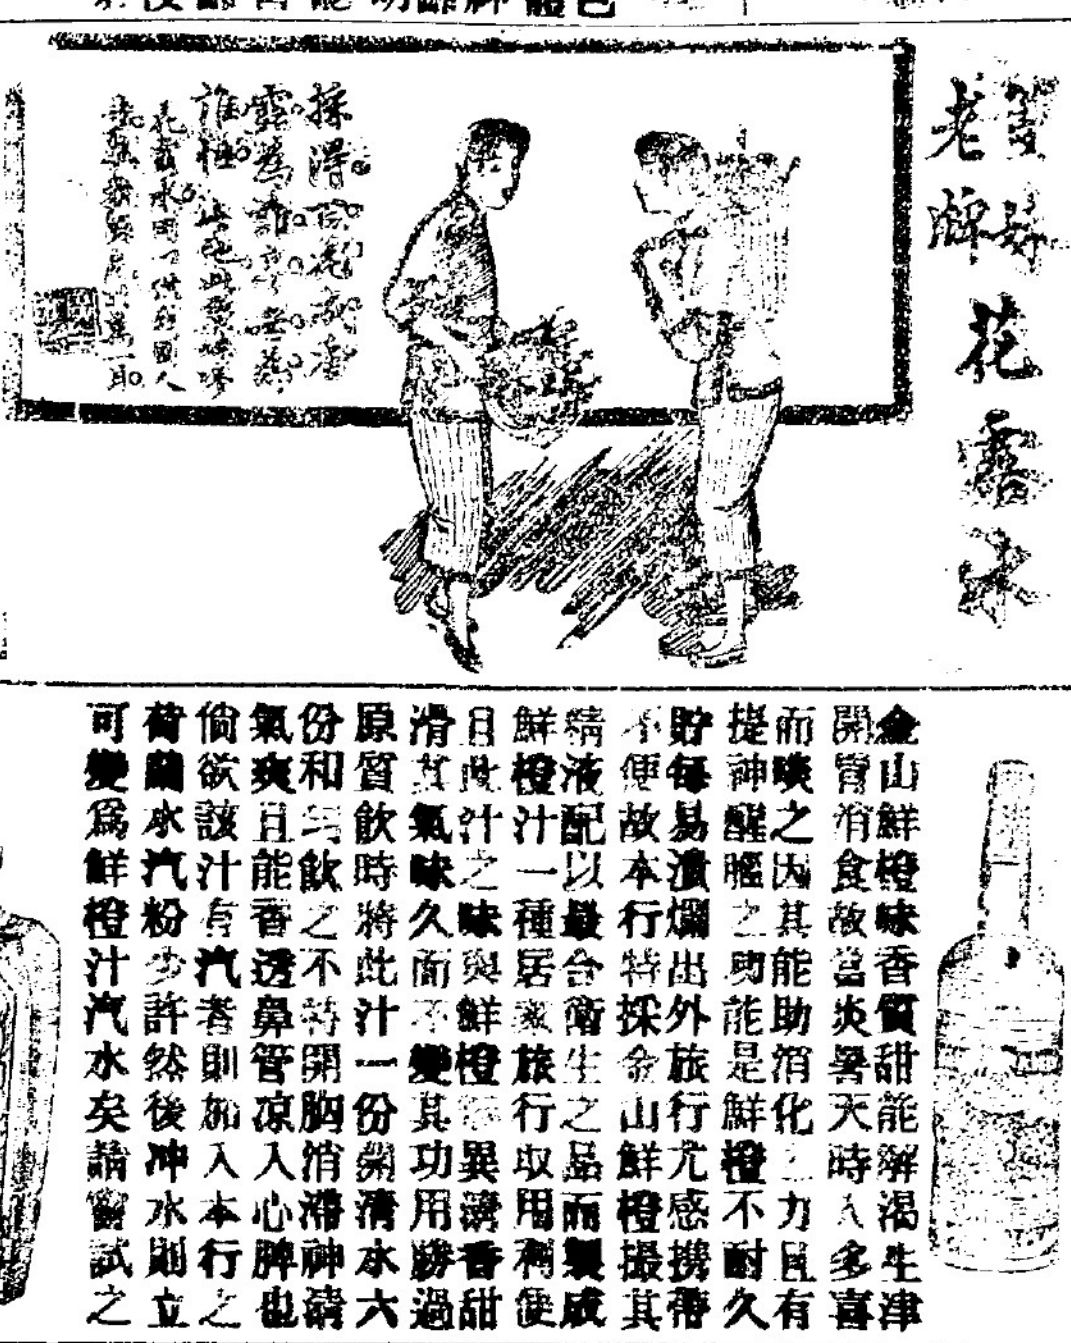 雙妹
老牌
花露水
採得百花
露為誰辛
金山鮮橙味香質甜能解渴生津
開胃消食故當炎暑天時人多喜
而啖之因其能助消化之力且有
提神醒腦之功能是鮮橙不耐久
貯每易潰爛出外旅行尤感携帶
不便故本行特採金山鮮橙撮其
精液配以最合衛生之品而製成
鮮橙汁一種居家旅行取用利便
且此汁之味與鮮橙無異濃香甜
滑其氣味久而不變其功用勝過
原質飲時將此汁一份開清水六
份和勻飲之不特開胸消滯神清
氣爽且能香透鼻管凉入心脾也
倘欲該汁有汽者則加入本行之
荷蘭水汽粉少許然後冲水則立
可變爲鮮橙汁汽水矣請嘗試之